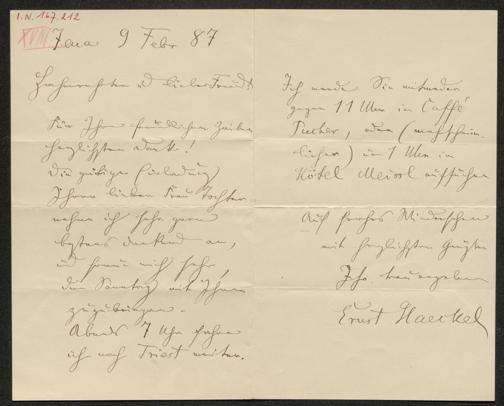 I.N. 167.212
XVIII
Jena 9 Febr 87
Hochverehrter u lieber Freund!
Für Ihre freundlichen Zeilen
herzlichsten Dank!
Die gütige Einladung
Ihrer lieben Frau Tochter
nehme ich sehr gern
bestens dankend an,
und freue mich sehr,
den Sonntag mit Ihnen
zuzubringen.
Abends 7 Uhr fahre
ich nach Triest weiter.
Ich werde Sie entweder
gegen 11 Uhr in Caffé
Pucher, oder (wahrschein-
licher) um 1 Uhr in
Hôtel Meissl aufsuchen
Auf frohes Wiedersehen
mit herzlichsten Grüßen
Ihr treu ergebener
Ernst Haeckel